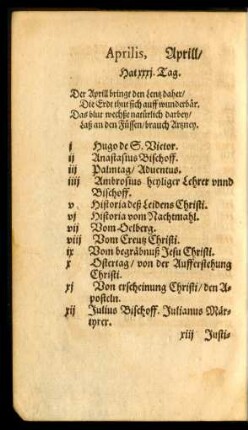 Aprilis, Aprill/
Hat xxxj. Tag.
Der Aprill bringt den lentz daher/
Die Erdt thut sich auff wunderbâr.
Das blut wechßt natürlich darbey/
Laß an den Füssen/brauch Artzney.
j Hugo de S. Victor.
ij Anastasius Bischoff.
iij Palmtag/ Aduentus.
iiij Ambrosius heyliger Lehrer vnnd
Bischoff.
v Historia deß Leidens Christi.
vj Historia vom Nachtmahl.
vij Vom Oelberg.
viij Vom Creutz Christi.
ix Vom begräbnuß Jesu Christi.
x Ostertag/ von der Aufferstehung
Christi.
xj Von erscheinung Christi/ den A-
posteln.
xij Julius Bischoff. Julianus Mär-
tyrer.
xiij Justi-